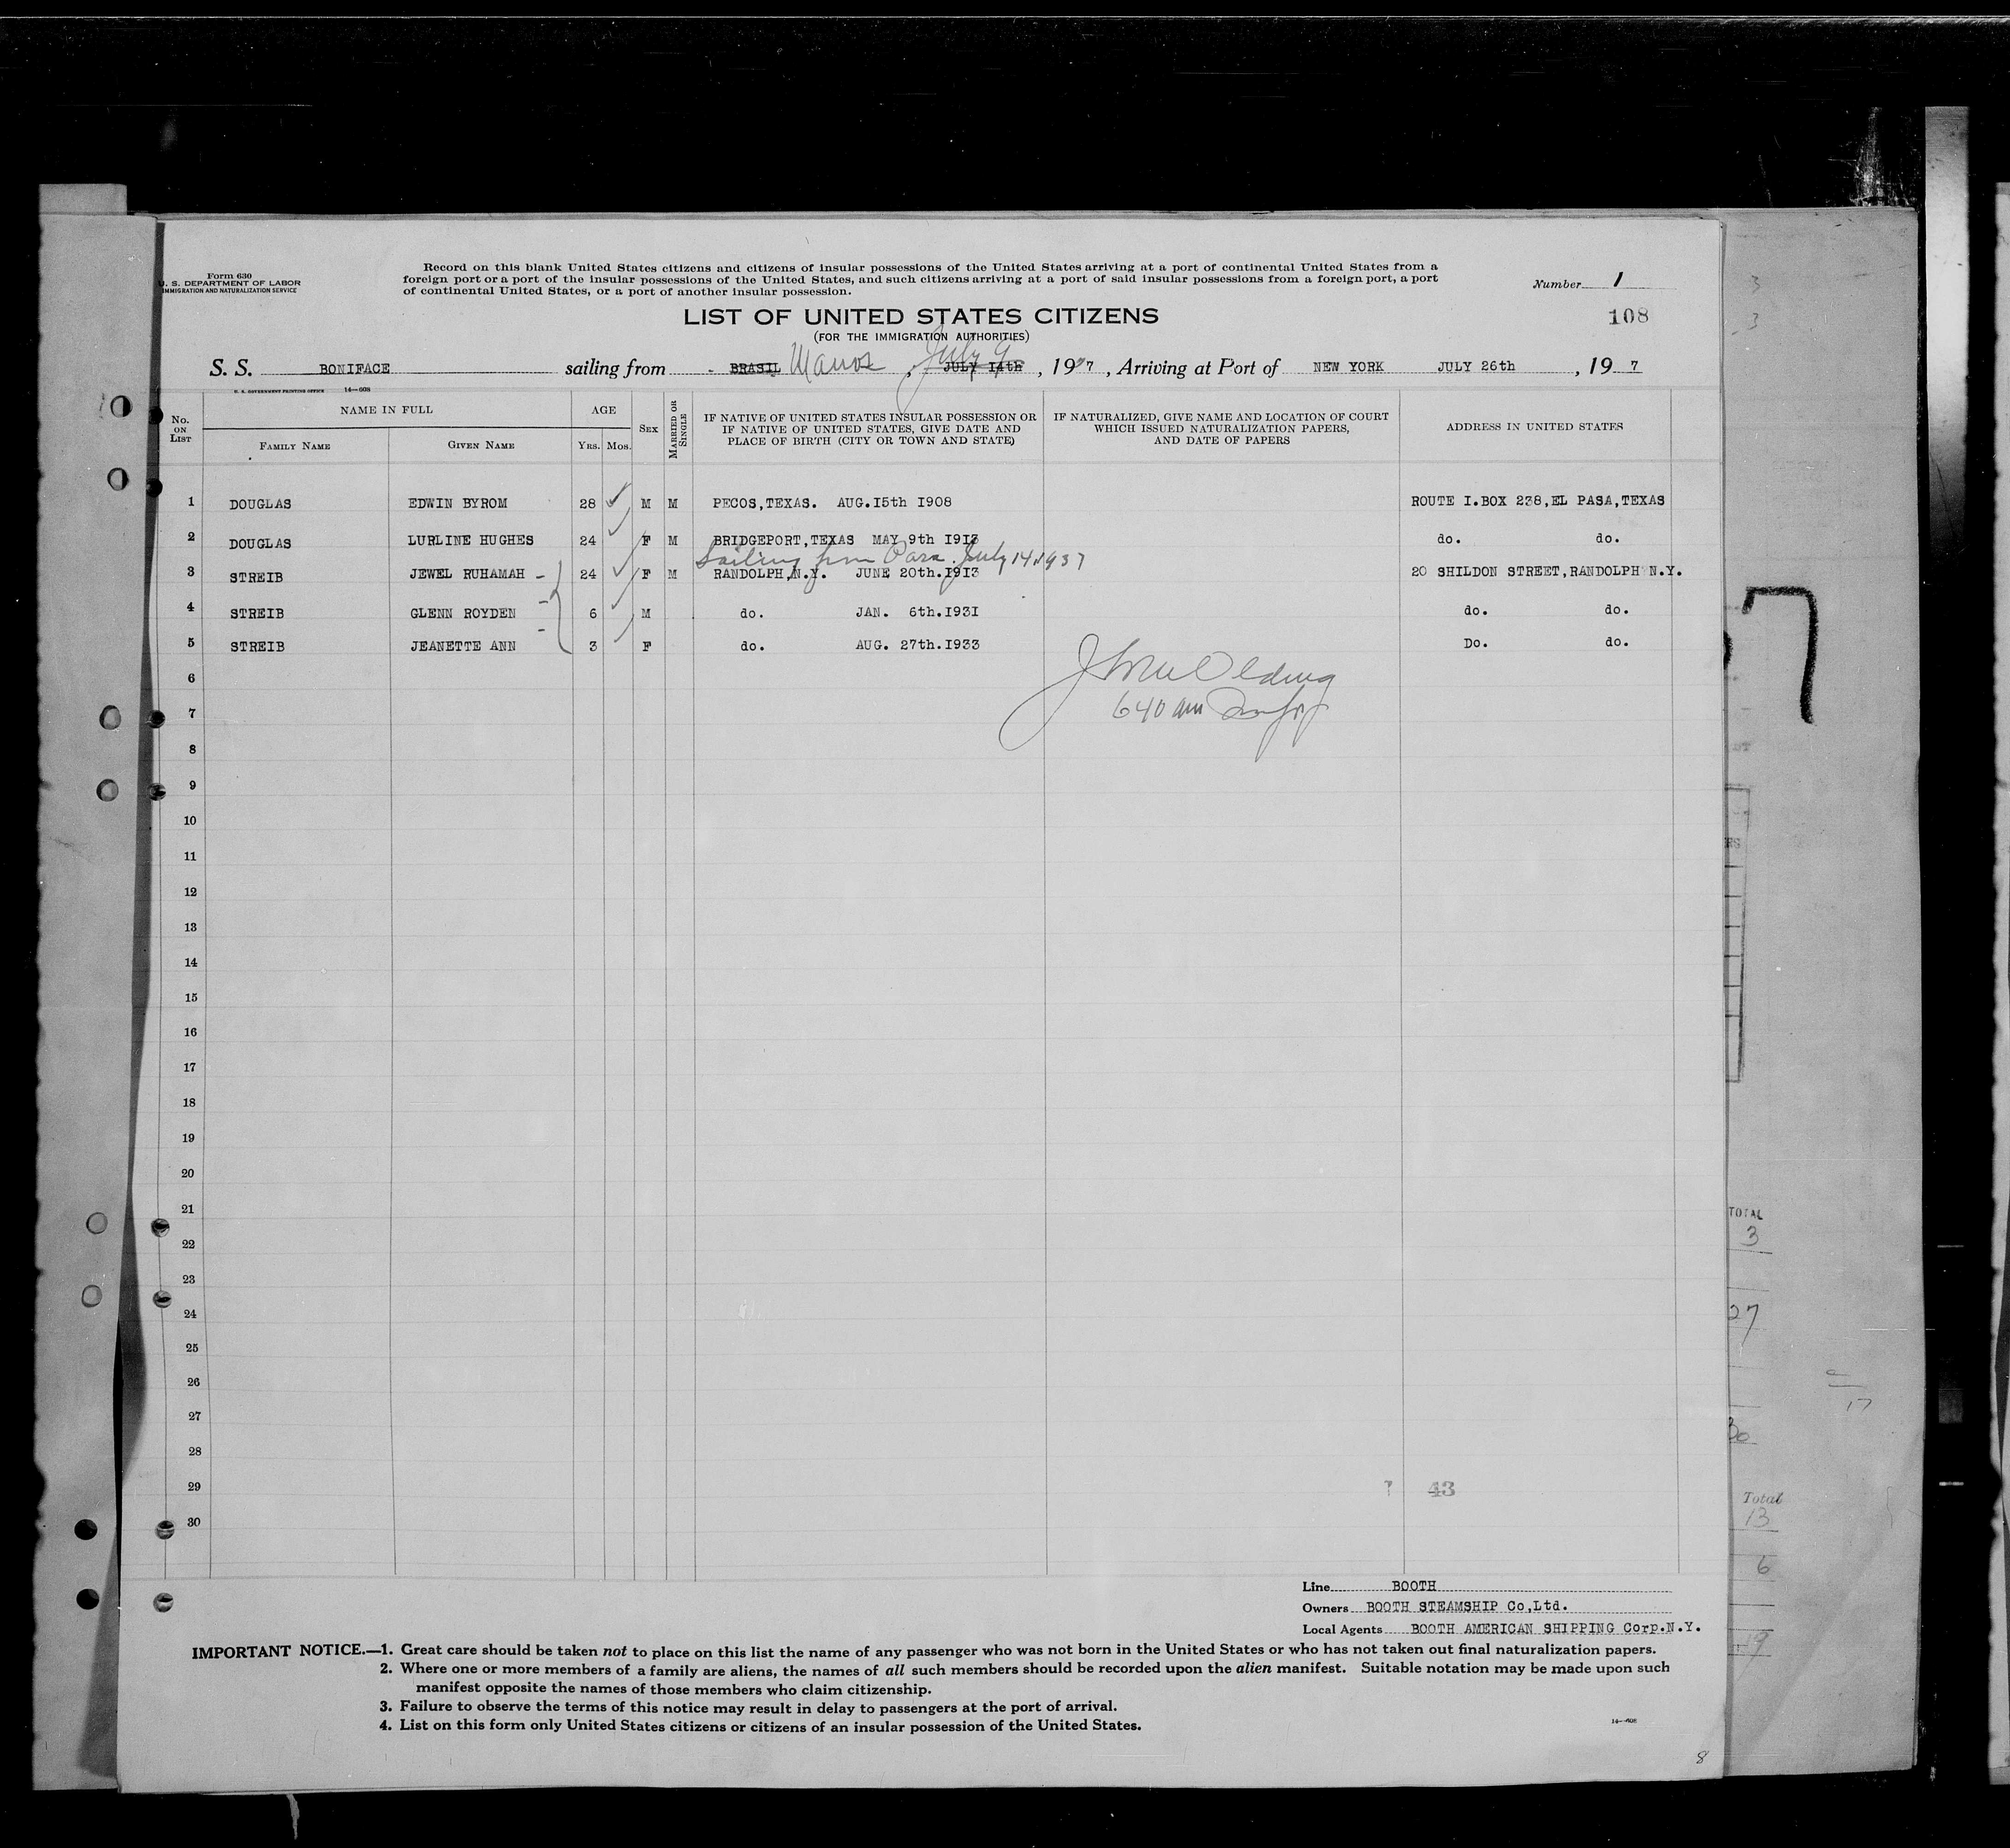 Form 630
U. S. DEPARTMENT OF LABOR
IMMIGRATION AND NATURALIZATION SERVICE
Record on this blank United States citizens and citizens of insular possessions of the United States arriving at a port of continental United States from a
foreign port or a port of the insular possessions of the United States, and such citizens arriving at a port of said insular possessions from a foreign port, a port
of continental United States, or a port of another insular possession.
Number 1
108
LIST OF UNITED STATES CITIZENS
(FOR THE IMMIGRATION AUTHORITIES)
S. S. BONIFACE sailing from BRASIL Manos, July 9 JULY 14th, 1937, Arriving at Port of NEW YORK JULY 26th, 19 7
U. S. GOVERNMENT PRINTING OFFICE 14—608
No. ON LIST
NAME IN FULL
FAMILY NAME GIVEN NAME
AGE
YRS. MOS.
SEX
MARRIED OR SINGLE
IF NATIVE OF UNITED STATES INSULAR POSSESSION OR
IF NATIVE OF UNITED STATES, GIVE DATE AND
PLACE OF BIRTH (CITY OR TOWN AND STATE)
IF NATURALIZED, GIVE NAME AND LOCATION OF COURT
WHICH ISSUED NATURALIZATION PAPERS,
AND DATE OF PAPERS
ADDRESS IN UNITED STATES
1 DOUGLAS EDWIN BYROM 28 M M PECOS,TEXAS. AUG.I5th I908 ROUTE I.BOX 238,EL PASA,TEXAS
2 DOUGLAS LURLINE HUGHES 24 F M BRIDGEPORT,TEXAS MAY 9th I913 do. do.
Sailing from Para July 14 1937
3 STREIB JEWEL RUHAMAH 24 F M RANDOLPH,N.Y. JUNE 20th.I913 20 SHILDON STREET,RANDOLPH N.Y.
4 STREIB GLENN ROYDEN 6 M do. JAN. 6th.I93I do. do.
5 STREIB JEANETTE ANN 3 F do. AUG. 27th.I933 Do. do.
6
640 am
7
8
9
10
11
12
13
14
15
16
17
18
19
20
21
22
23
24
25
26
27
28
29
43
30
TOTAL
3
27
30
Total
13
6
19
Line BOOTH
Owners BOOTH STEAMSHIP Co,Ltd.
Local Agents BOOTH AMERICAN SHIPPING Corp.N.Y.
IMPORTANT NOTICE.—1. Great care should be taken not to place on this list the name of any passenger who was not born in the United States or who has not taken out final naturalization papers.
2. Where one or more members of a family are aliens, the names of all such members should be recorded upon the alien manifest. Suitable notation may be made upon such
manifest opposite the names of those members who claim citizenship.
3. Failure to observe the terms of this notice may result in delay to passengers at the port of arrival.
4. List on this form only United States citizens or citizens of an insular possession of the United States.
14—608
8